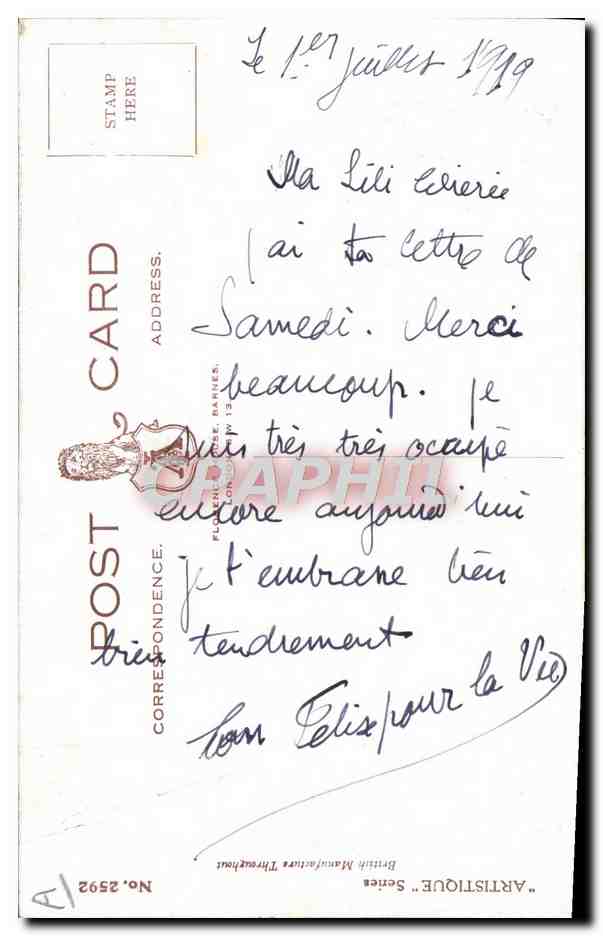 Le 1er juillet 1919
Ma Lili chérie
j'ai ta lettre de
Samedi. Merci
beaucoup. je
suis très très occupé
encore aujourd'hui
je t'embrasse bien
bien tendrement
ton Félix pour la Vie
STAMP
HERE
POST CARD
ADDRESS.
CORRESPONDENCE.
FLORENCE HOUSE, BARNES,
LONDON, S.W. 13
CPAPHIL
British Manufacture Throughout
"ARTISTIQUE" Series
No. 2592
A/